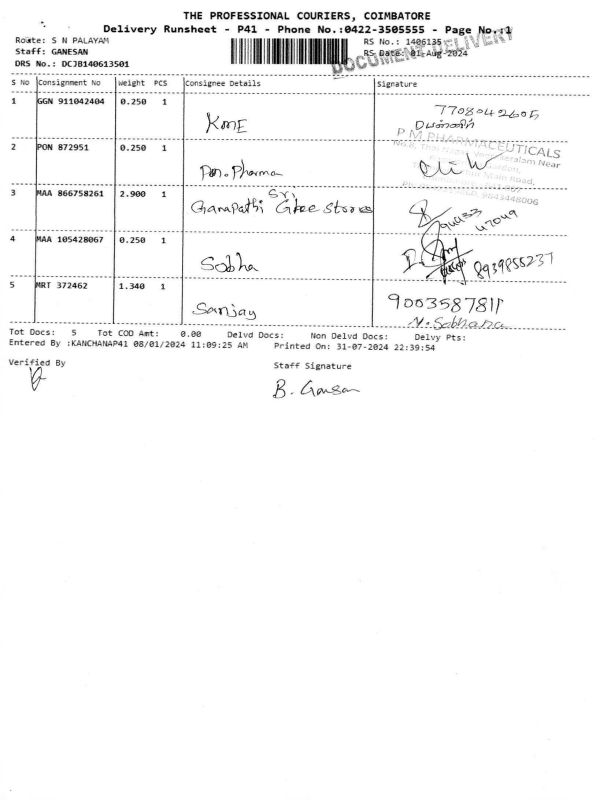 THE PROFESSIONAL COURIERS, COIMBATORE
Delivery Runsheet - P41 - Phone No.:0422-3505555 - Page No.:1
Route: S N PALAYAM
RS No.: 1406135
Staff: GANESAN
RS Date: 01-Aug-2024
DOCUMENT DELIVERY
DRS No.: DCJB140613501
S No Consignment No Weight PCS Consignee Details Signature
1 GGN 911042404 0.250 1
7708042605
KME
2 PON 872951 0.250 1
P M PHARMACEUTICALS
Pm. Pharma
Main Road,
3 MAA 866758261 2.900 1
Sri
Ganapathi Ghee Stores
94433
47049
4 MAA 105428067 0.250 1
Sobha
8939855237
5 MRT 372462 1.340 1
9003587811
Sanjay
N. Sabhana
Tot Docs: 5 Tot COD Amt: 0.00 Delvd Docs: Non Delvd Docs: Delvy Pts:
Entered By :KANCHANAP41 08/01/2024 11:09:25 AM Printed On: 31-07-2024 22:39:54
Verified By
Staff Signature
B. Gansan